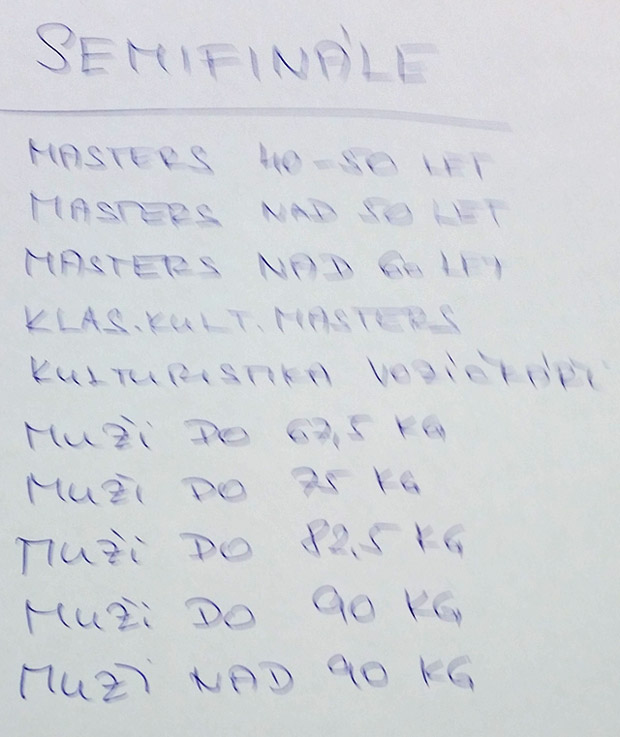 SEMIFINÁLE
MASTERS 40-50 LET
MASTERS NAD 50 LET
MASTERS NAD 60 LET
KLAS. KULT. MASTERS
KULTURISTIKA VOZÍČKÁŘI
MUŽI DO 67,5 KG
MUŽI DO 75 KG
MUŽI DO 82,5 KG
MUŽI DO 90 KG
MUŽI NAD 90 KG